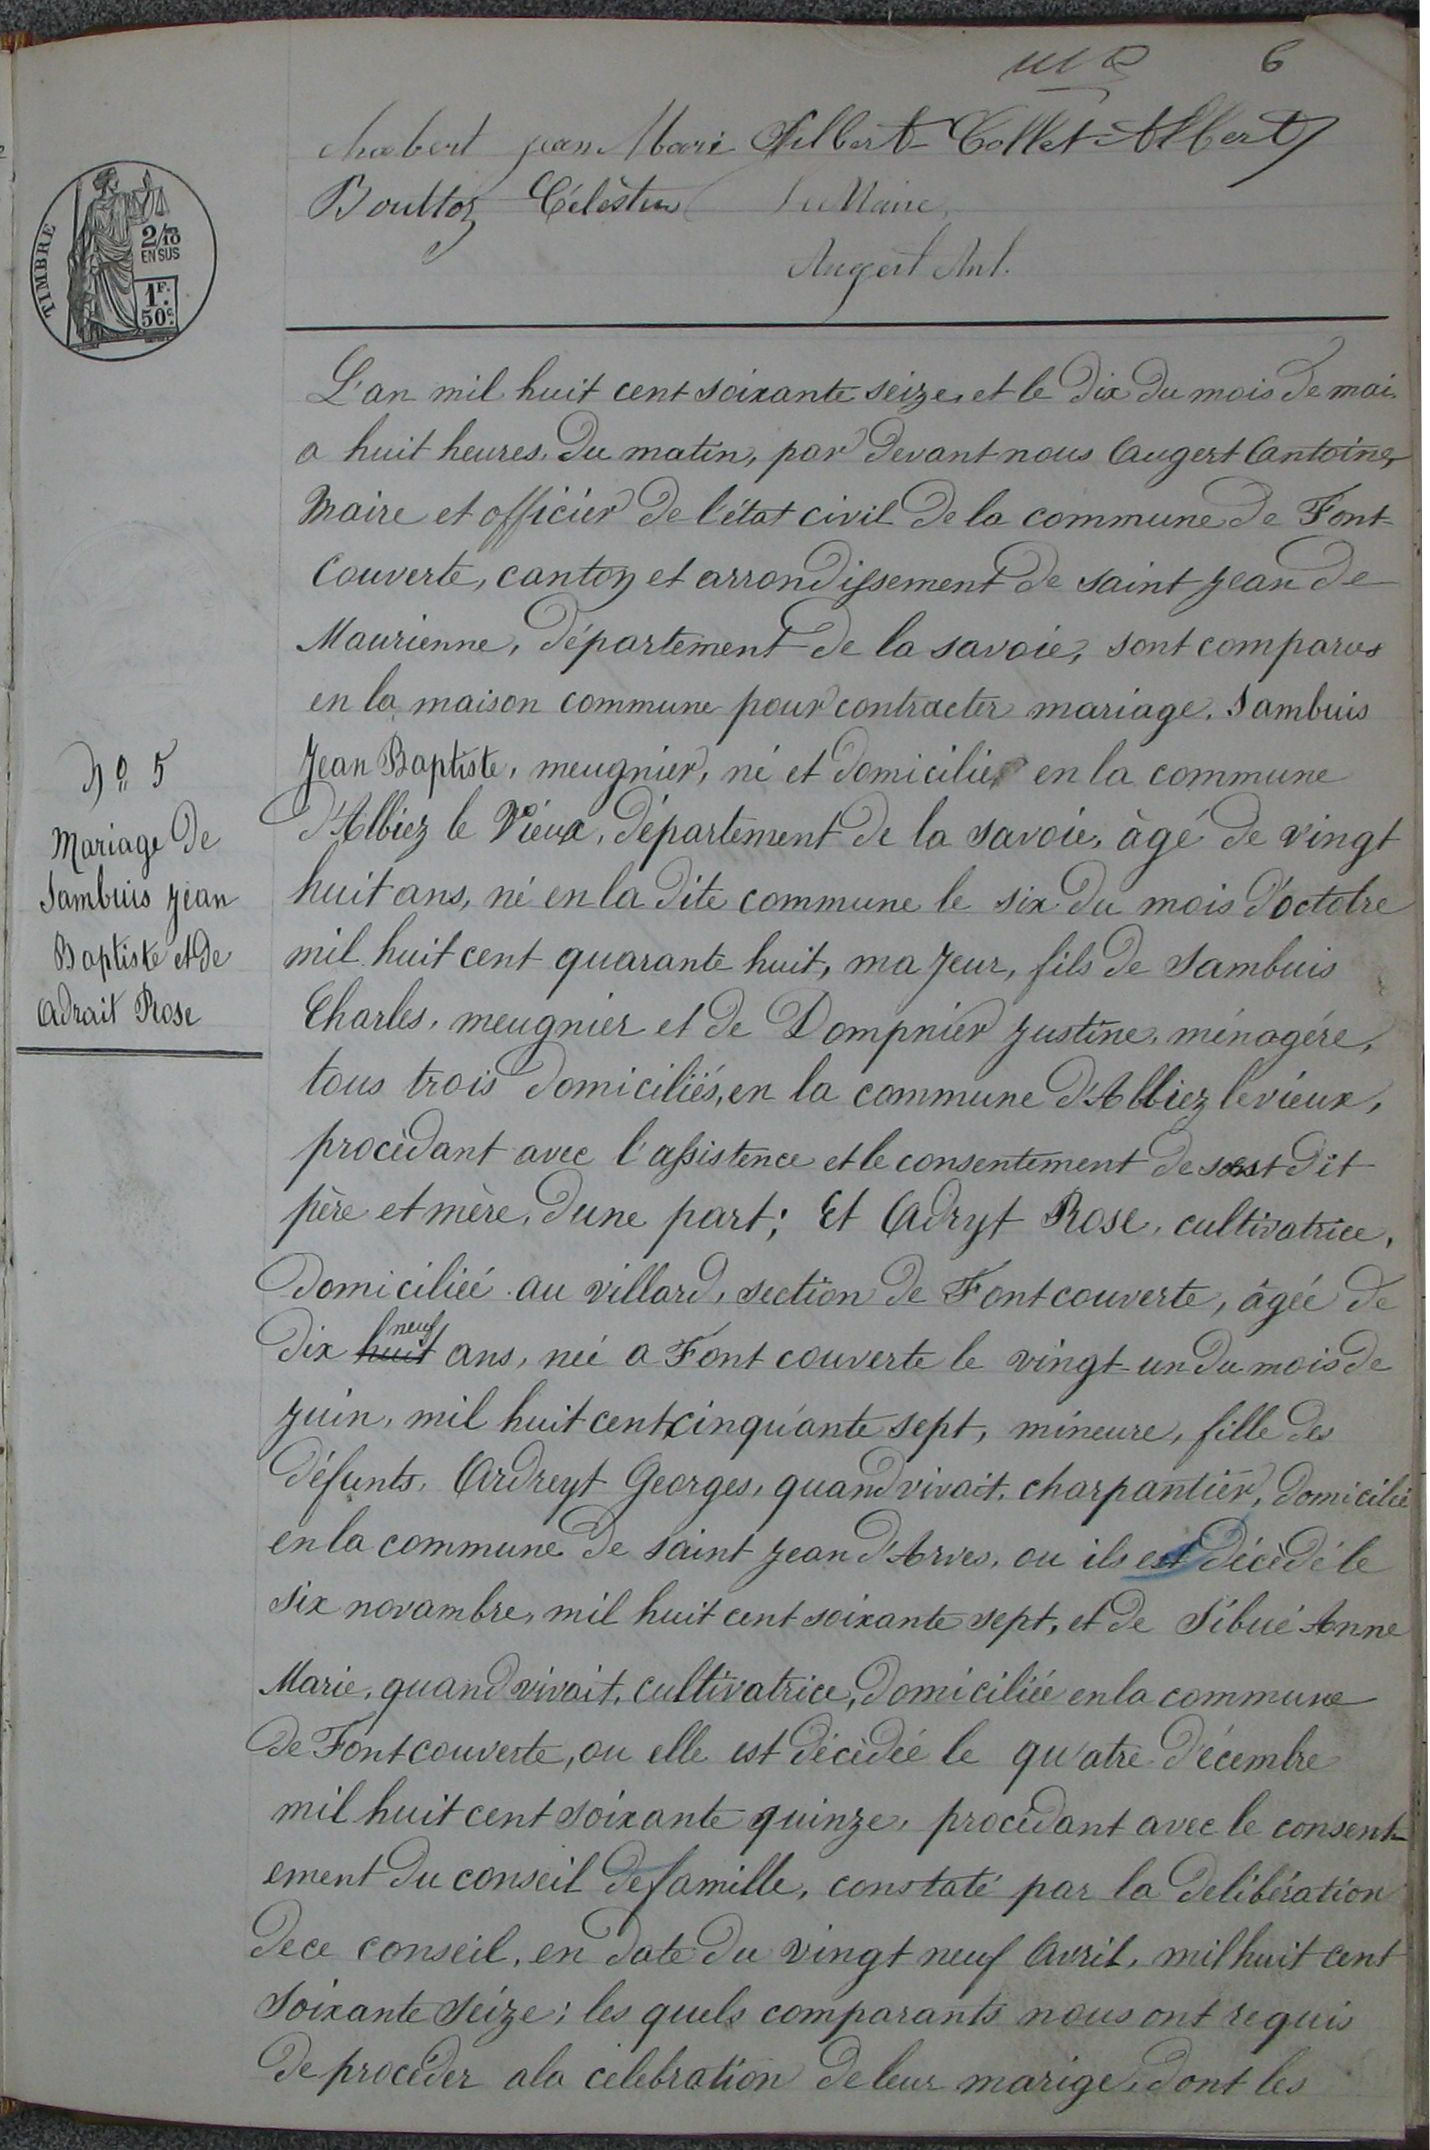 6
chabert jean Marie Gilbert Collet Albert
Bouttoz Célestin Le Maire
Augert Ant.
TIMBRE
2/10
EN SUS
1F.
50c.
L'an mil huit cent soixante seize, et le dix du mois de mai,
a huit heures, du matin, par devant nous Augert Antoine,
Maire et officier de l'état civil de la commune de Font-
Couverte, canton et arrondissement de saint jean de
Maurienne, département de la savoie, sont comparus
en la maison commune pour contracter mariage. Sambuis
Jean Baptiste, meugnier, né et domicilié en la commune
d'Albiez le Vieux, département de la savoie, âgé de vingt
huit ans, né en la dite commune le six du mois d'octobre
mil huit cent quarante huit, majeur, fils de Sambuis
Charles, meugnier et de Dompnier justine, ménagére,
tous trois domiciliés, en la commune d'Albiez le vieux,
procèdant avec l'assistence et le consentement de dit
père et mère, dune part; Et Adryt Rose, cultivatrice,
domiciliéé au villard, section de Fontcouverte, âgéé de
neuf
dix huit ans, néé a Font couverte le vingt un du mois de
juin, mil huit cent cinquante sept, mineure, fille des
défunts, Ardreyt Georges, quand vivait, charpantier, domicilié
en la commune de saint jean d'Arves, ou ils est décèdé le
six novambre, mil huit cent soixante sept, et de Sibué Anne
Marie, quand vivait, cultivatrice, domiciliéé en la commune
de Fontcouverte, ou elle est décèdéé le quatre décembre
mil huit cent soixante quinze, procèdant avec le consent-
ement du conseil de famille, constaté par la delibération
de ce conseil, en date du vingt neuf Avril, mil huit cent
Soixante Seize; les quels comparants nous ont requis
de procéder a la célebration de leur marige, dont les
No 5
Mariage de
Sambuis jean
Baptiste et de
Adrait Rose